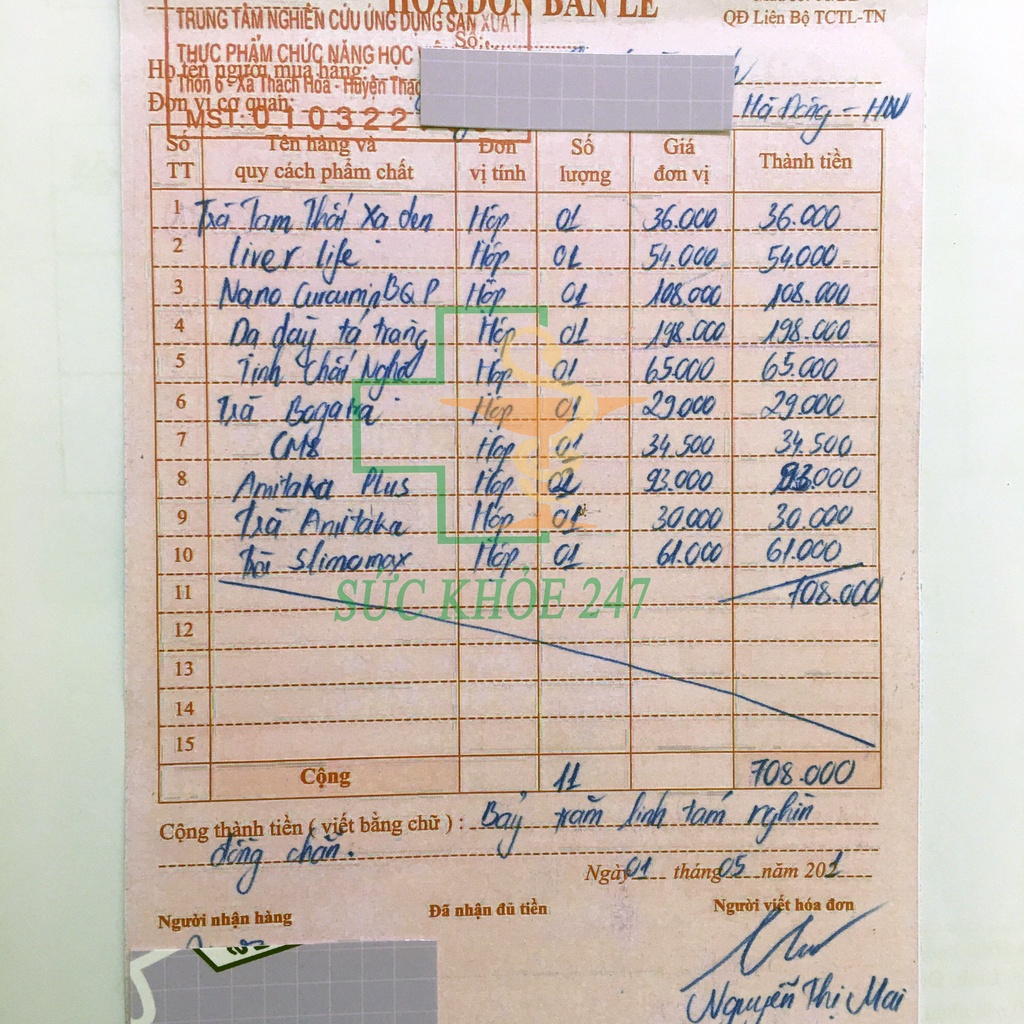 HÓA ĐƠN BÁN LẺ
QĐ Liên Bộ TCTL-TN
TRUNG TÂM NGHIÊN CỨU ỨNG DỤNG SẢN XUẤT
Số:
THỰC PHẨM CHỨC NĂNG HỌC
Họ tên người mua hàng:
Thôn 6 - Xã Thạch Hòa - Huyện Thạc
Đơn vị cơ quan: Hà Đông - HN
MST: 010322
Số TT Tên hàng và quy cách phẩm chất Đơn vị tính Số lượng Giá đơn vị Thành tiền
1 Trà Tam Thất Xạ đen Hộp 01 36.000 36.000
2 Liver life Hộp 01 54.000 54.000
3 Nano Curcumin BQP Hộp 01 108.000 108.000
4 Dạ dày tá tràng Hộp 01 198.000 198.000
5 Tinh chất Nghệ Hộp 01 65.000 65.000
6 Trà Bogaka Hộp 01 29.000 29.000
7 CM8 Hộp 01 34.500 34.500
8 Amitaka Plus Hộp 93.000 93.000
9 Trà Amitaka Hộp 01 30.000 30.000
10 Trà Slimomax Hộp 01 61.000 61.000
11 708.000
SỨC KHỎE 247
12
13
14
15
Cộng 11 708.000
Cộng thành tiền ( viết bằng chữ ) : Bảy trăm linh tám nghìn
đồng chẵn.
Ngày 01 tháng 05 năm 201
Người nhận hàng Đã nhận đủ tiền Người viết hóa đơn
Nguyễn Thị Mai